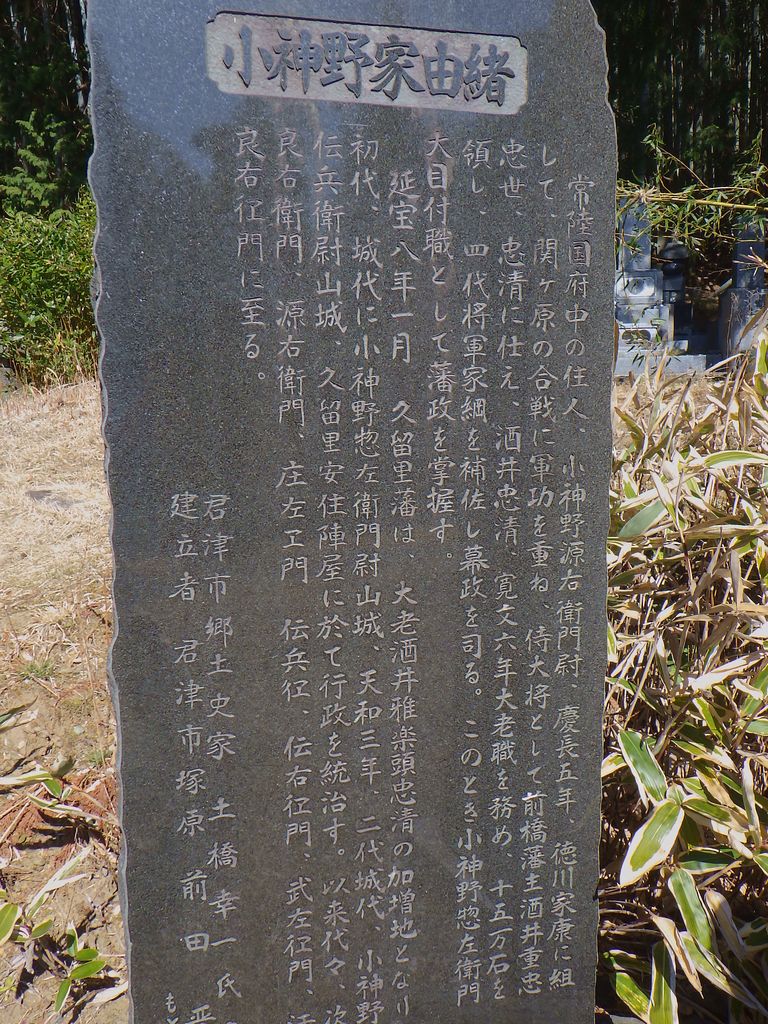 小神野家由緒
常陸国府中の住人、小神野源右衛門尉、慶長五年、徳川家康に組
して、関ヶ原の合戦に軍功を重ね、侍大将として前橋藩主酒井重忠
忠世、忠清に仕え、酒井忠清、寛文六年大老職を務め、十五万石を
領し、四代将軍家綱を補佐し幕政を司る。このとき小神野惣左衛門
大目付職として藩政を掌握す。
延宝八年一月 久留里藩は、大老酒井雅楽頭忠清の加増地となり
初代、城代に小神野惣左衛門尉山城、天和三年、二代城代、小神野
伝兵衛尉山城、久留里安住陣屋に於て行政を統治す。以来代々、次
良右衛門、源右衛門、庄左ヱ門 伝兵㔺、伝右㔺門、武左㔺門、
良右㔺門に至る。
君津市郷土史家 土橋幸一氏
建立者 君津市塚原前田